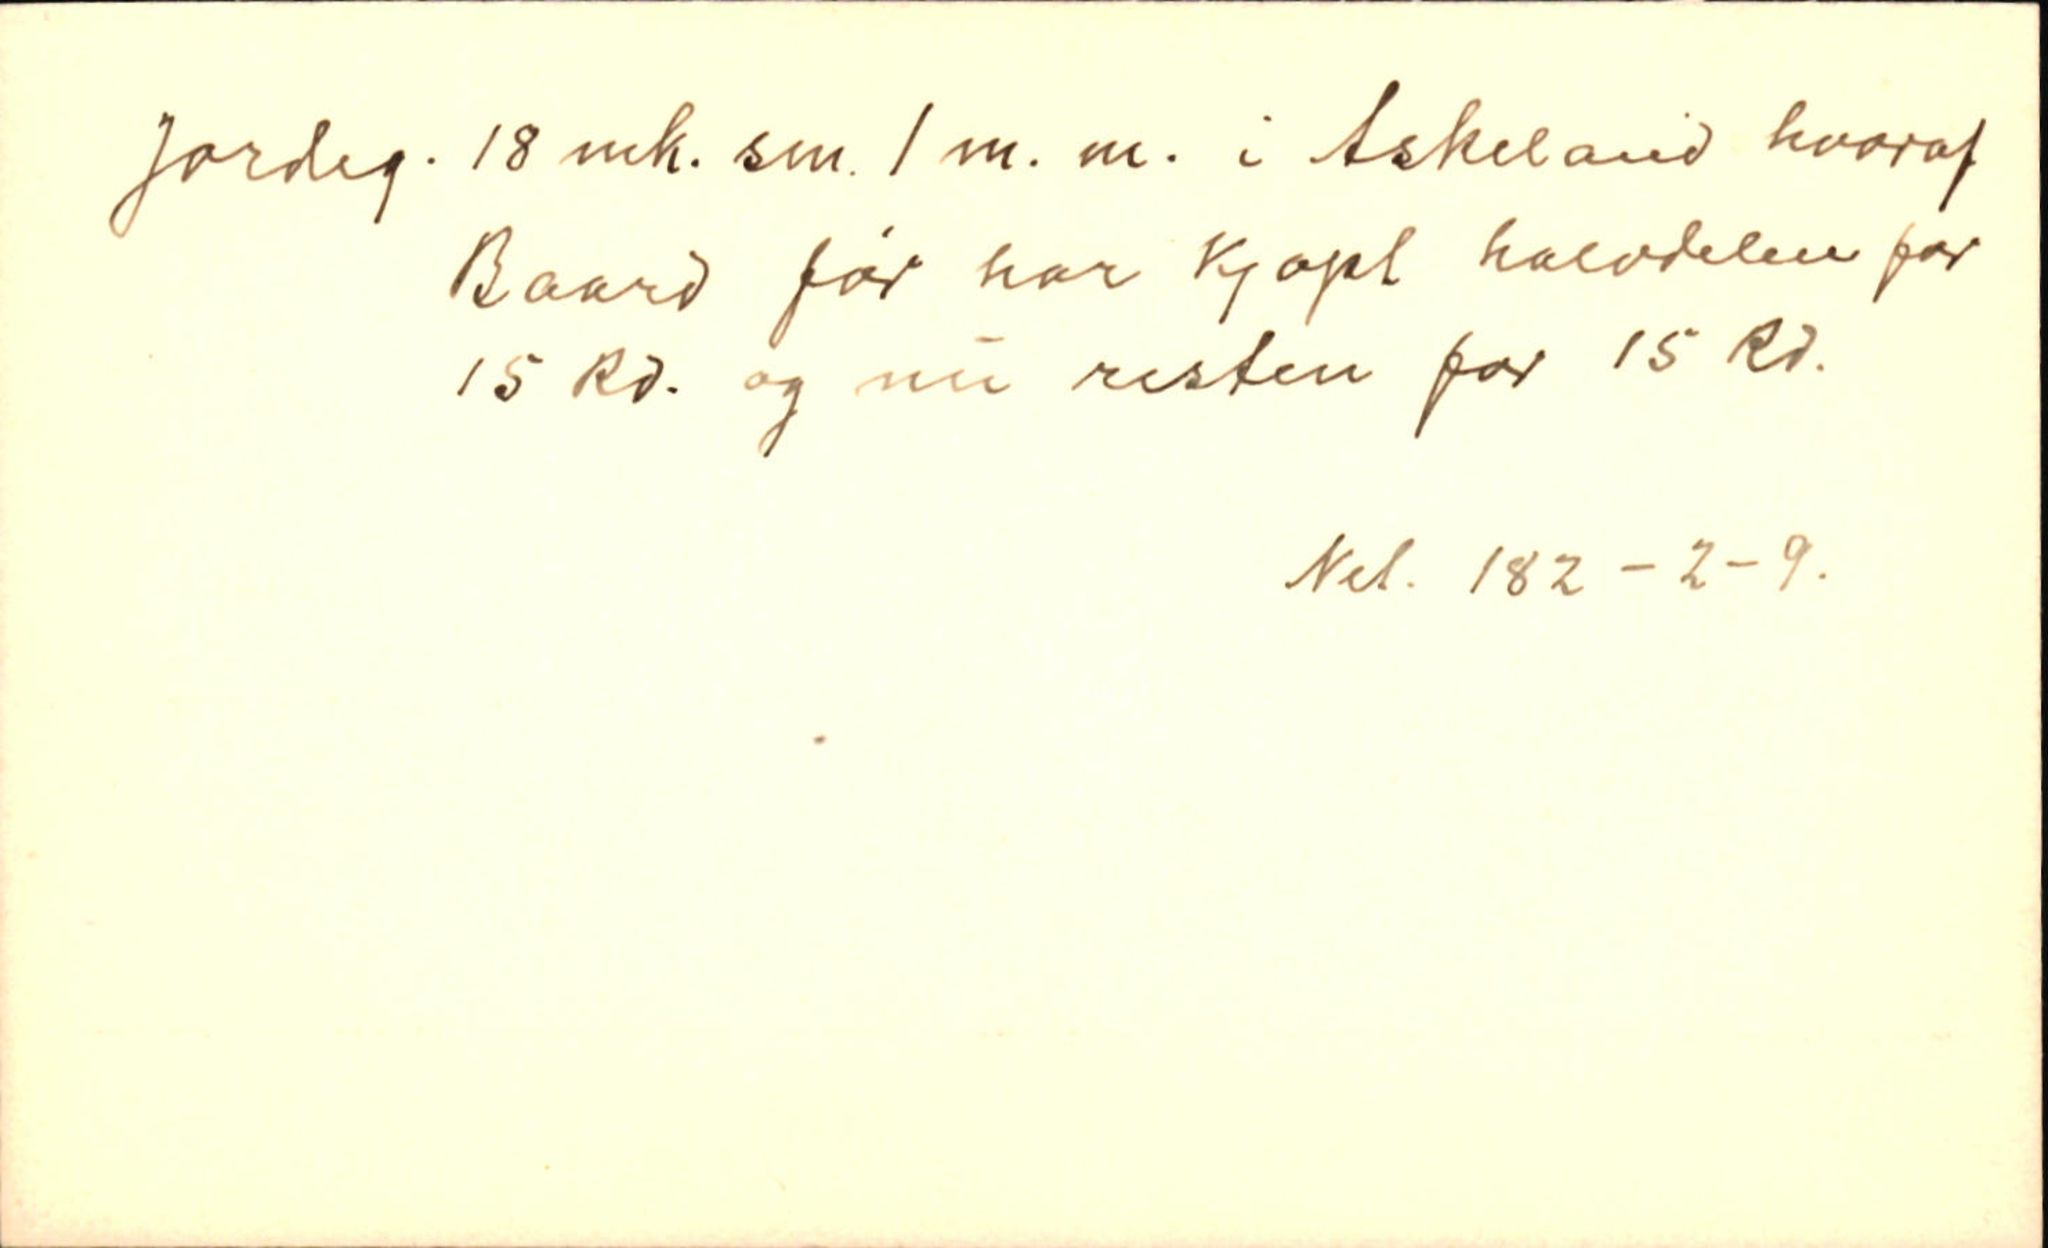 Jordeg. 18 mk. sm. 1 m. m. i Askeland hvoraf
Baard før har kjøpt halvdelen for
15 Rd. og nu resten for 15 Rd.
Net. 182-2-9.